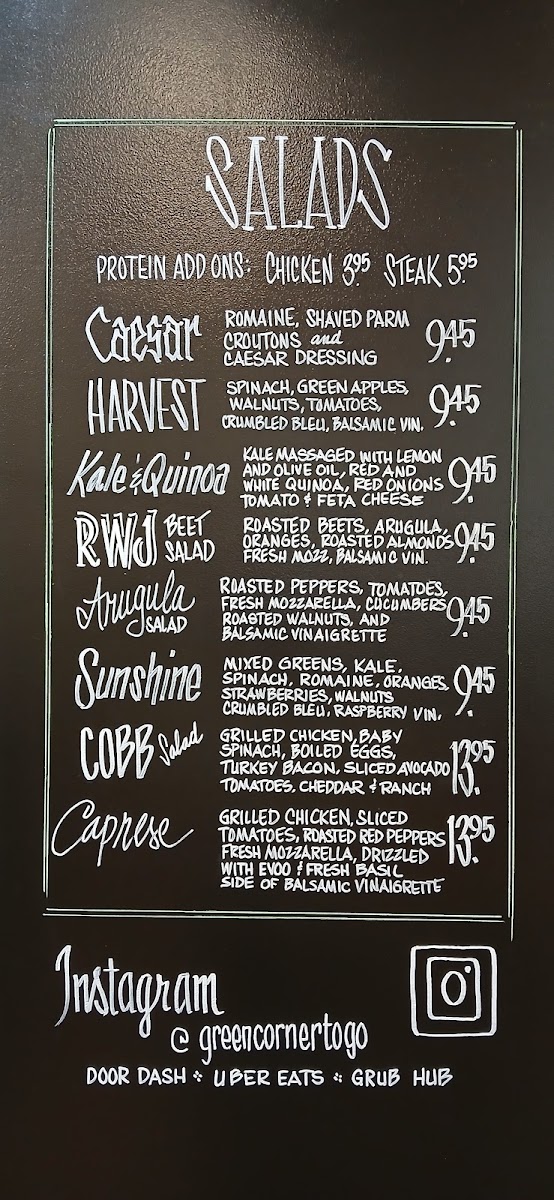 SALADS
PROTEIN ADD ONS: CHICKEN 3.95 STEAK 5.95
Caesar
ROMAINE, SHAVED PARM
CROUTONS and
CAESAR DRESSING
9.45
HARVEST
SPINACH, GREEN APPLES,
WALNUTS, TOMATOES,
CRUMBLED BLEU, BALSAMIC VIN.
9.45
Kale & Quinoa
KALE MASSAGED WITH LEMON
AND OLIVE OIL, RED AND
WHITE QUINOA, RED ONIONS
TOMATO & FETA CHEESE
9.45
RWJ BEET
SALAD
ROASTED BEETS, ARUGULA,
ORANGES, ROASTED ALMONDS
FRESH MOZZ, BALSAMIC VIN.
9.45
Arugula
SALAD
ROASTED PEPPERS, TOMATOES,
FRESH MOZZARELLA, CUCUMBERS
ROASTED WALNUTS, AND
BALSAMIC VINAIGRETTE
9.45
Sunshine
MIXED GREENS, KALE,
SPINACH, ROMAINE, ORANGES,
STRAWBERRIES, WALNUTS
CRUMBLED BLEU, RASPBERRY VIN.
9.45
COBB Salad
GRILLED CHICKEN, BABY
SPINACH, BOILED EGGS,
TURKEY BACON, SLICED AVOCADO
TOMATOES, CHEDDAR & RANCH
13.95
Caprese
GRILLED CHICKEN, SLICED
TOMATOES, ROASTED RED PEPPERS
FRESH MOZZARELLA, DRIZZLED
WITH EVOO & FRESH BASIL
SIDE OF BALSAMIC VINAIGRETTE
13.95
Instagram
@ greencornertogo
DOOR DASH UBER EATS GRUB HUB